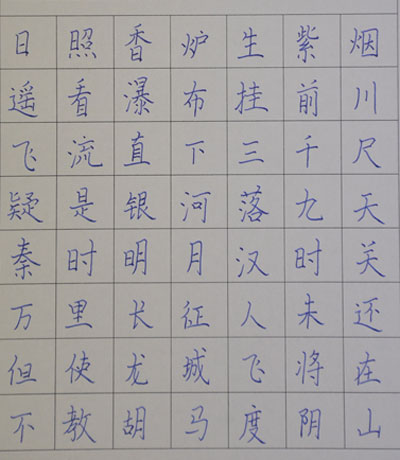 日照香炉生紫烟
遥看瀑布挂前川
飞流直下三千尺
疑是银河落九天
秦时明月汉时关
万里长征人未还
但使龙城飞将在
不教胡马度阴山